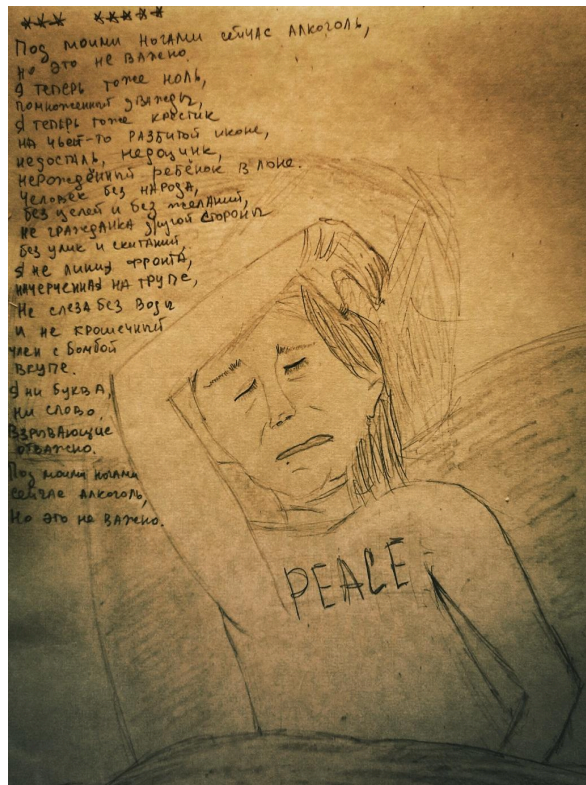 *** *****
Под моими ногами сейчас алкоголь,
Но это не важно.
Я теперь тоже ноль,
помноженный дважды,
Я теперь тоже крестик
на чьей-то разбитой иконе,
недосталь, недоцинк,
нерождённый ребёнок в лоне.
Человек без народа,
без целей и без желаний,
не гражданка другой стороны
без улик и скитаний,
Я не линия фронта,
начерченная на трупе,
Не слеза без воды
и не крошечный
член с бомбой
вкупе.
Я ни буква,
ни слово,
взрывающие
отважно.
Под моими ногами
сейчас алкоголь,
Но это не важно.
PEACE